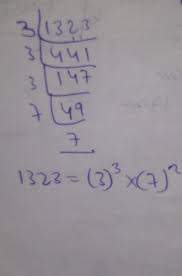 3 | 1323
3 | 441
3 | 147
7 | 49
7
1323 = (3)³ × (7)²